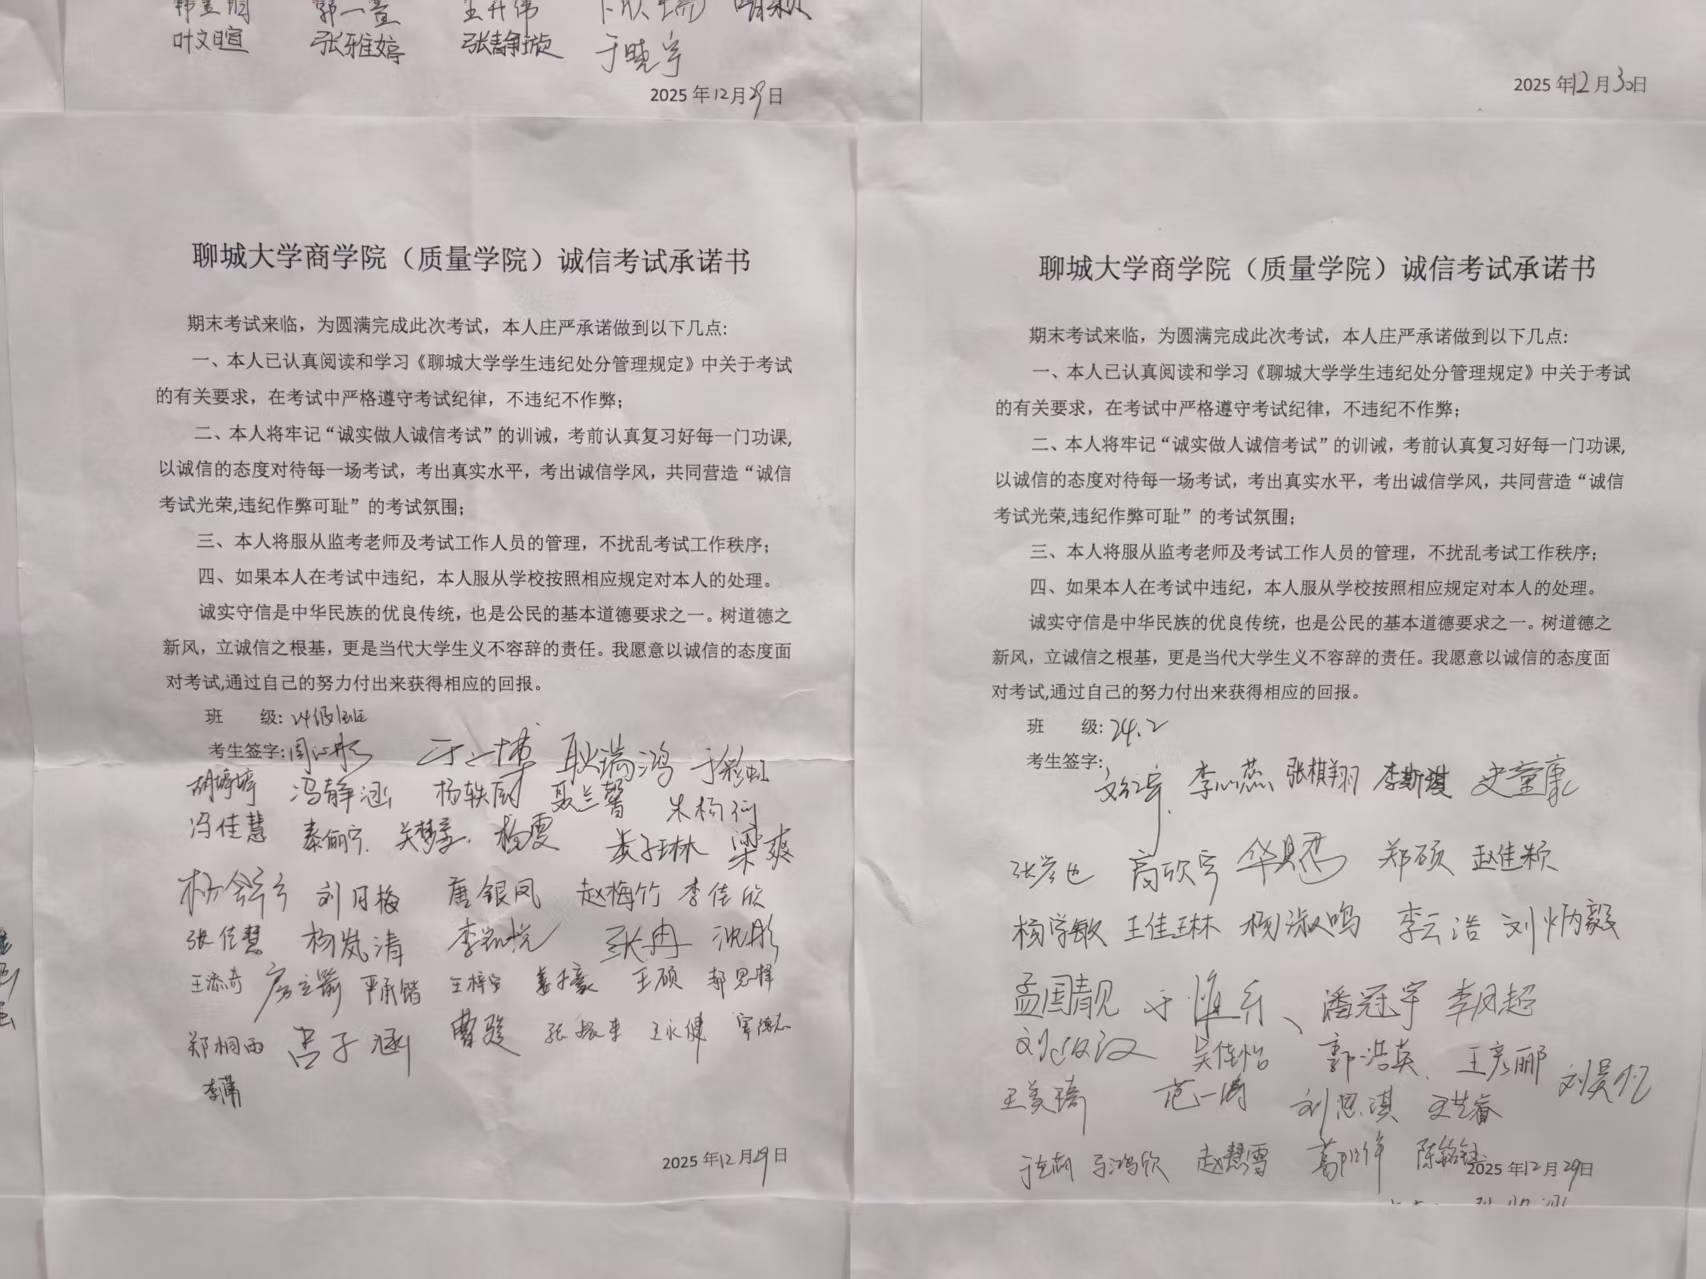 叶文暄 张雅婷 张静璇 于晓宇
2025 年12月29日
2025 年12月30日
聊城大学商学院（质量学院）诚信考试承诺书
期末考试来临，为圆满完成此次考试，本人庄严承诺做到以下几点:
一、本人已认真阅读和学习《聊城大学学生违纪处分管理规定》中关于考试
的有关要求，在考试中严格遵守考试纪律，不违纪不作弊；
二、本人将牢记“诚实做人诚信考试”的训诫，考前认真复习好每一门功课,
以诚信的态度对待每一场考试，考出真实水平，考出诚信学风，共同营造“诚信
考试光荣,违纪作弊可耻”的考试氛围；
三、本人将服从监考老师及考试工作人员的管理，不扰乱考试工作秩序；
四、如果本人在考试中违纪，本人服从学校按照相应规定对本人的处理。
诚实守信是中华民族的优良传统，也是公民的基本道德要求之一。树道德之
新风，立诚信之根基，更是当代大学生义不容辞的责任。我愿意以诚信的态度面
对考试,通过自己的努力付出来获得相应的回报。
班 级: 24级1班
考生签字: 耿瑞鸿 于彩虹
胡婷婷 冯静涵 杨轶厨 聂兰馨
冯佳慧 秦俪宁 杨雯 娄子琳 梁爽
刘月梅 唐银凤 赵梅竹 李佳欣
张佳慧 杨岚清 张冉 沈彤
王添奇 严承锴 王梓宇 姜子豪 王硕
郑桐雨 吕子涵 曹璇 张振来 王永健
2025 年12月29日
聊城大学商学院（质量学院）诚信考试承诺书
期末考试来临，为圆满完成此次考试，本人庄严承诺做到以下几点:
一、本人已认真阅读和学习《聊城大学学生违纪处分管理规定》中关于考试
的有关要求，在考试中严格遵守考试纪律，不违纪不作弊；
二、本人将牢记“诚实做人诚信考试”的训诫，考前认真复习好每一门功课,
以诚信的态度对待每一场考试，考出真实水平，考出诚信学风，共同营造“诚信
考试光荣,违纪作弊可耻”的考试氛围；
三、本人将服从监考老师及考试工作人员的管理，不扰乱考试工作秩序；
四、如果本人在考试中违纪，本人服从学校按照相应规定对本人的处理。
诚实守信是中华民族的优良传统，也是公民的基本道德要求之一。树道德之
新风，立诚信之根基，更是当代大学生义不容辞的责任。我愿意以诚信的态度面
对考试,通过自己的努力付出来获得相应的回报。
班 级: 24.2
考生签字:
李心蕊 张棋翔 李斯琪 史童康
张彦也 高欣宇 郑硕 赵佳颖
杨学敏 王佳琳 杨淑鸣 李云浩 刘炳毅
孟国靓 于惟乐 潘冠宇 李凤超
吴佳怡 郭浩英 王彦郦
王美琦 范一涛 刘思淇
于鸿欣 赵慧雪
2025 年12月29日